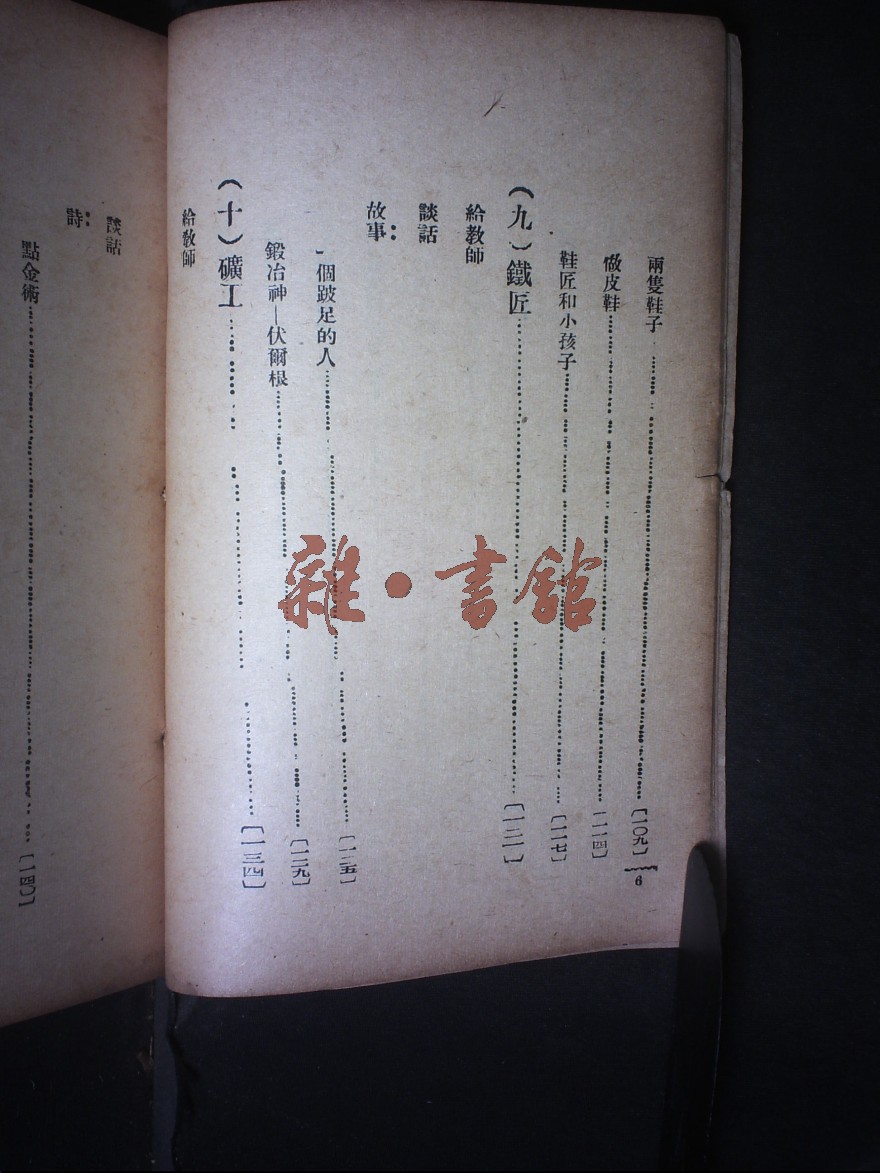 兩隻鞋子……〔一〇九〕
做皮鞋……〔一一四〕
鞋匠和小孩子……〔一一七〕
（九）鐵匠……〔一二一〕
給教師
談話
故事：
一個跛足的人……〔一二五〕
鍛冶神—伏爾根……〔一二九〕
（十）礦工……〔一三四〕
給教師
談話
詩：
點金術……〔一四〇〕
6
雜·書館